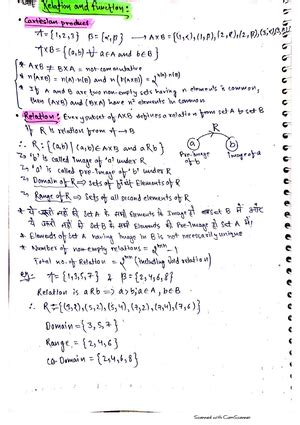 Relation and function:
• Cartesian product
A = {1,2,3} B = {α,β} → A×B = {(1,α),(1,β),(2,α),(2,β),(3,α)(3,β)}
A×B = {(a,b) a∈A and b∈B}
* A×B ≠ B×A = not commutative
* n(A×B) = n(A)·n(B) and
* If A and B are two non-empty sets having n elements is common,
then (A×B) and (B×A) have n² elements in common
• Relation: Every subset of A×B defines a relation from set A to set B
If R is relation from A → B
∴ R : {(a,b) | (a,b) ∈ A×B and aRb}
R
a b
Pre-image of b
Image of a
'b' is called Image of 'a' under R
'a' is called pre-image of 'b' under R
Domain of R → Sets of Elements of R
Range of R → Sets of all second elements of R
* Set A Elements Image Set B
Set B Elements Pre-Image Set A
* Elements of Set A having Image in B is not necessarily unique
* Number of non-empty relations = - 1
Total no. of Relation = (including void relation)
eg:- A = {1,3,5,7} & B = {2,4,6,8}
Relation is aRb => a>b; a∈A, b∈B
∴ R = {(3,2),(5,2),(5,4),(7,2),(7,4),(7,6)}
Domain = {3,5,7}
Range = {2,4,6}
Co-Domain = {2,4,6,8}
Scanned with CamScanner